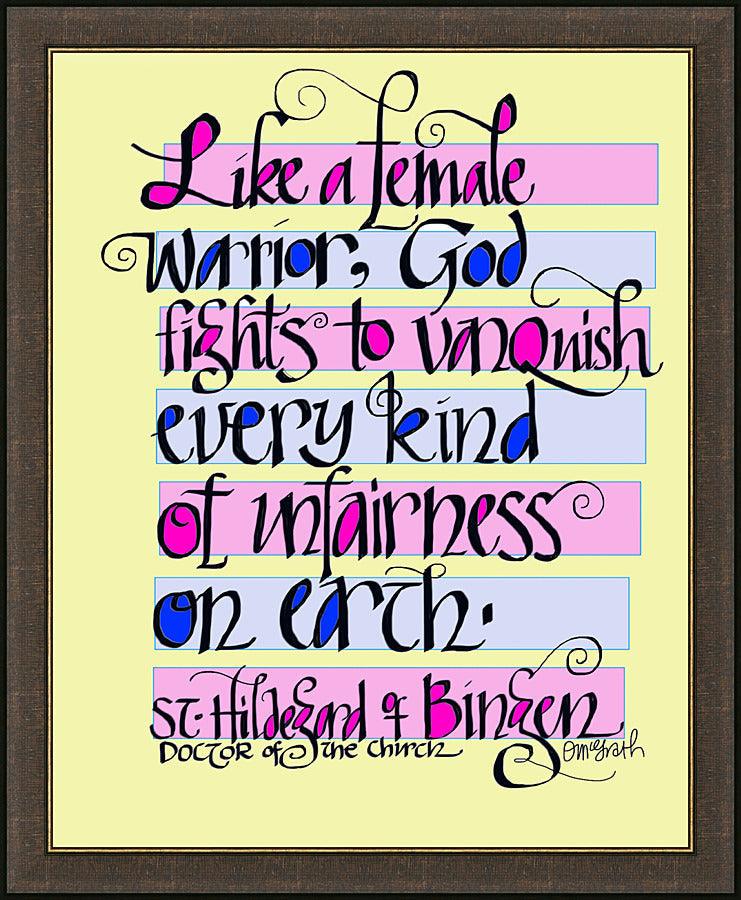 Like a female
warrior, God
fights to vanquish
every kind
of unfairness
on earth.
St. Hildegard of Bingen
Doctor of the Church
BMcGrath